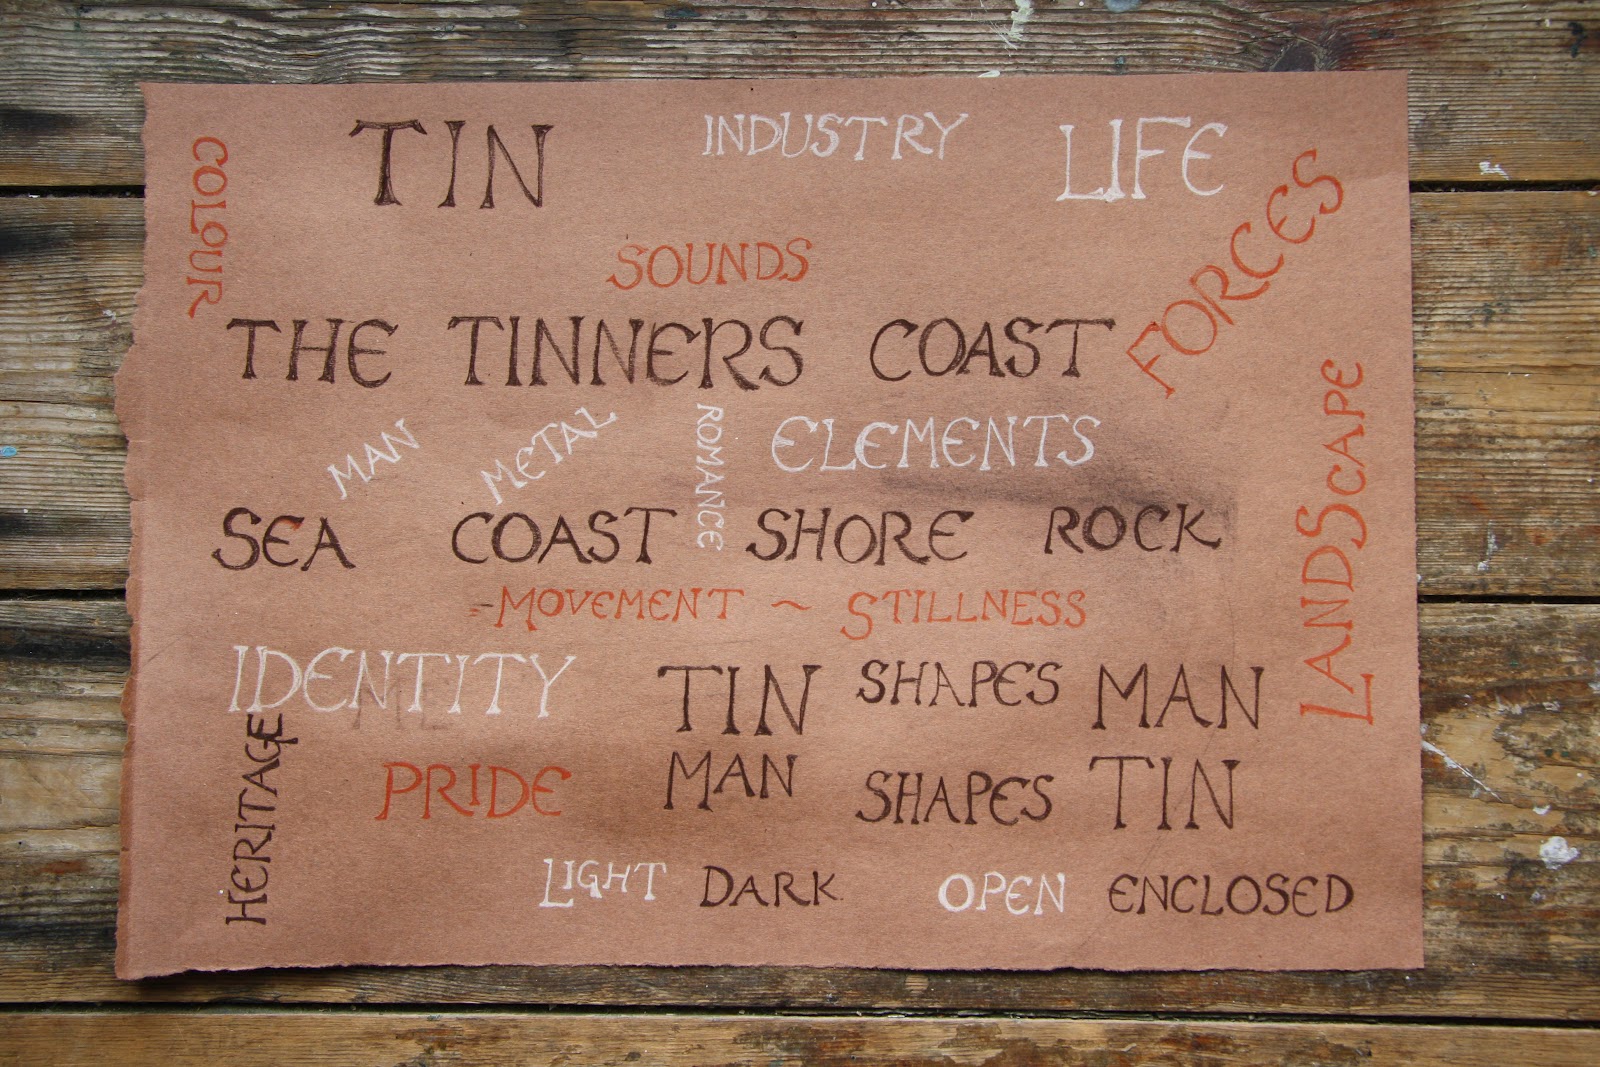 TIN INDUSTRY LIFE
COLOUR
SOUNDS
FORCES
THE TINNERS COAST
MAN METAL ROMANCE ELEMENTS
LANDSCAPE
SEA COAST SHORE ROCK
-MOVEMENT ~ STILLNESS
IDENTITY TIN SHAPES MAN
HERITAGE
PRIDE MAN SHAPES TIN
LIGHT DARK OPEN ENCLOSED